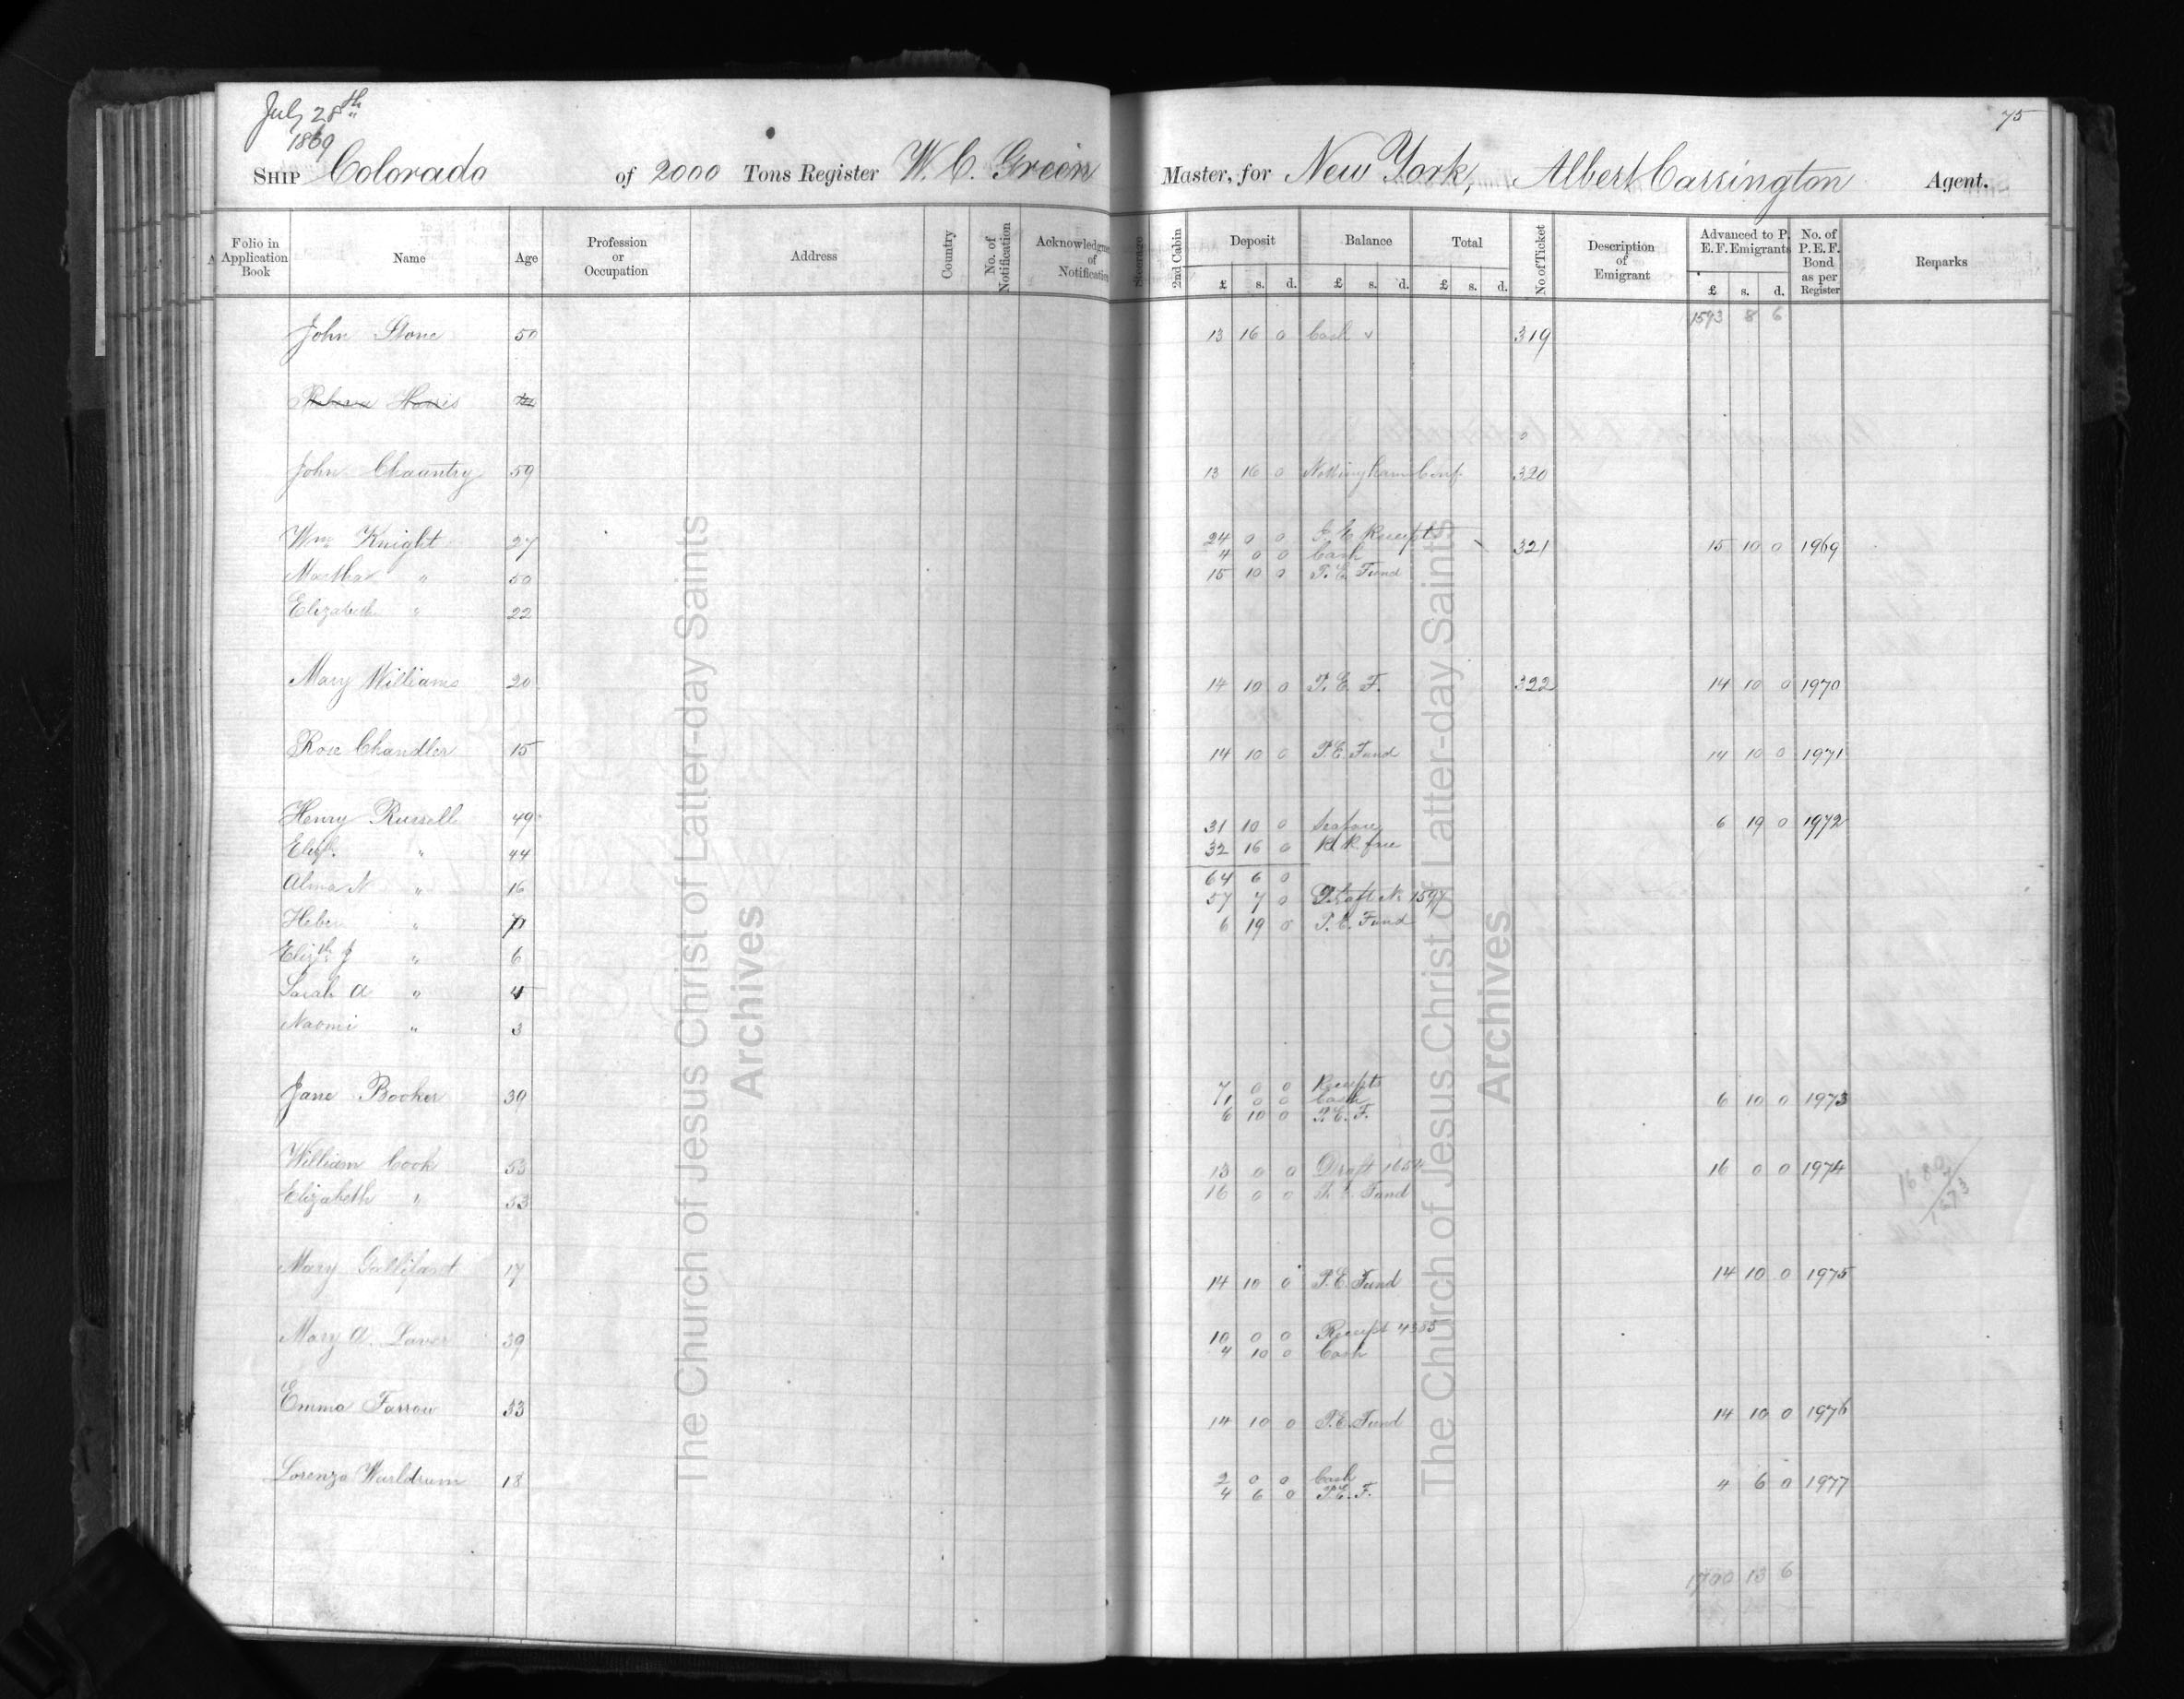 July 28th
1869
75
SHIP Colorado of 2000 Tons Register W. C. Green Master, for New York, Albert Carrington Agent.
Folio in Application Book Name Age Profession or Occupation Address Country No. of Notification Acknowledgme of Notification Steerage 2nd Cabin Deposit Balance Total No of Ticket Description of Emigrant Advanced to P. E. F. Emigrants No. of P. E. F. Bond as per Register Remarks
£ s. d. £ s. d. £ s. d. £ s. d.
1593 8 6
John Stone 50 13 16 0 Cash 319
Harris
John Chauntry 59 13 16 0 Nottingham Conf. 320
Wm Knight 27 24 0 0 P. E. Receipts 321 15 10 0 1969
4 0 0 Cash
Martha " 50 15 10 0 P. E. Fund
Elizabeth " 22
Mary Williams 20 14 10 0 P. E. F. 322 14 10 0 1970
Rose Chandler 15 14 10 0 P. E. Fund 14 10 0 1971
Henry Russell 49 31 10 0 Seafare 6 19 0 1972
Elizth " 44 32 16 0 R. R. fare
Alma N " 16 64 6 0
57 7 0 Draft No 1597
Heber " 6 19 0 P. E. Fund
Elizth J " 6
Sarah A " 4
Naomi " 3
Jane Booker 39 7 0 0 Receipts 6 10 0 1973
1 0 0 Cash
6 10 0 P. E. F.
William Cook 53 13 0 0 Draft 1654 16 0 0 1974
Elizabeth " 53 16 0 0 P. E. Fund
Mary Gallifant 17 14 10 0 P. E. Fund 14 10 0 1975
Mary A. Laver 39 10 0 0 Receipt 4385
4 10 0 Cash
Emma Farrow 33 14 10 0 P. E. Fund 14 10 0 1976
Lorenzo Warldrum 18 2 0 0 Cash 4 6 0 1977
4 6 0 P. E. F.
1700 13 6
The Church of Jesus Christ of Latter-day Saints
Archives
The Church of Jesus Christ of Latter-day Saints
Archives